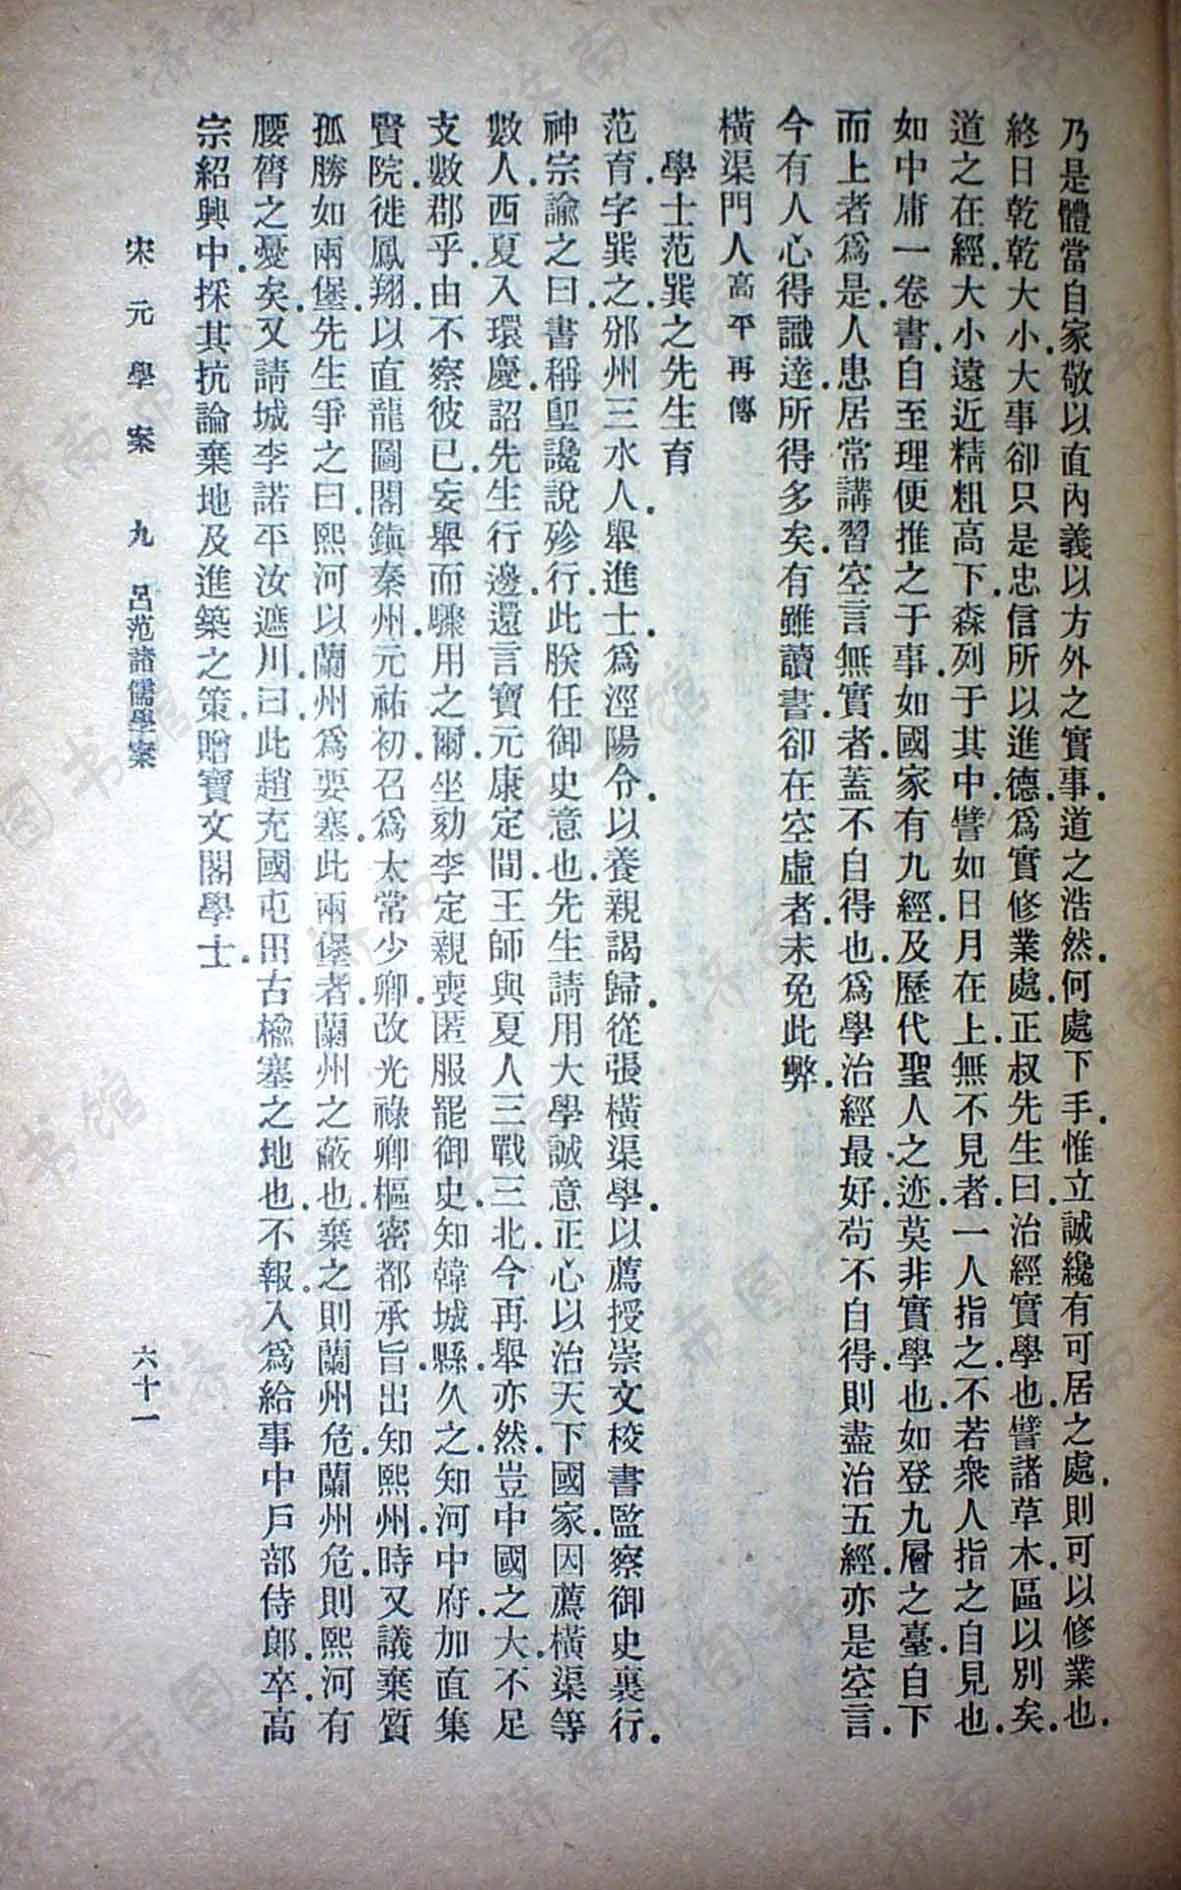 乃是體當自家敬以直內義以方外之實事道之浩然何處下手惟立誠纔有可居之處則可以修業也
終日乾乾大小大事卻只是忠信所以進德爲實修業處正叔先生曰治經實學也譬諸草木區以別矣
道之在經大小遠近精粗高下森列于其中譬如日月在上無不見者一人指之不若衆人指之自見也
如中庸一卷書自至理便推之于事如國家有九經及歷代聖人之迹莫非實學也如登九層之臺自下
而上者爲是人患居常講習空言無實者蓋不自得也爲學治經最好苟不自得則盡治五經亦是空言
今有人心得識達所得多矣有雖讀書卻在空虛者未免此弊
橫渠門人高平再傳
學士范巽之先生育
范育字巽之邠州三水人舉進士爲涇陽令以養親謁歸從張橫渠學以薦授崇文校書監察御史裏行
神宗諭之曰書稱堲讒說殄行此朕任御史意也先生請用大學誠意正心以治天下國家因薦橫渠等
數人西夏入環慶詔先生行邊還言寶元康定間王師與夏人三戰三北今再舉亦然豈中國之大不足
支數郡乎由不察彼已妄舉而驟用之爾坐劾李定親喪匿服罷御史知韓城縣久之知河中府加直集
賢院徙鳳翔以直龍圖閣鎮秦州元祐初召爲太常少卿改光祿卿樞密都承旨出知熙州時又議棄質
孤勝如兩堡先生爭之曰熙河以蘭州爲要塞此兩堡者蘭州之蔽也棄之則蘭州危蘭州危則熙河有
腰膂之憂矣又請城李諾平汝遮川曰此趙充國屯田古榆塞之地也不報入爲給事中戶部侍郎卒高
宗紹興中採其抗論棄地及進築之策贈寶文閣學士
宋元學案 九 呂范諸儒學案 六十一